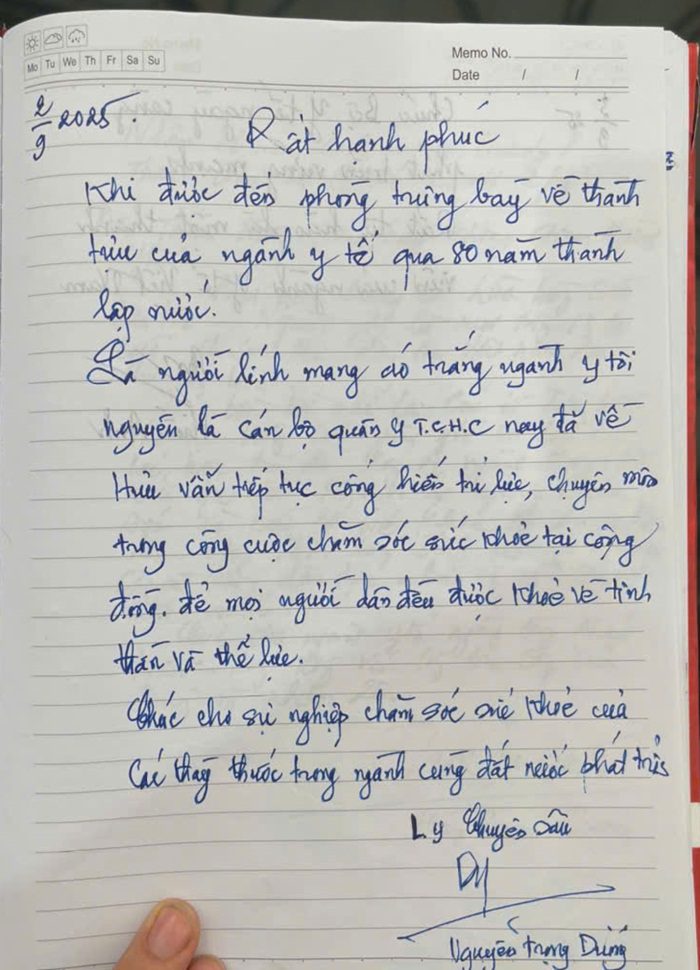 Mo Tu We Th Fr Sa Su
Memo No.
Date / /
2/9 2025.
Rất hạnh phúc
Khi được đến phòng trưng bày về thành
tựu của ngành y tế qua 80 năm thành
lập nước.
Là người lính mang áo trắng ngành y tôi
nguyên là cán bộ quân y T.C.H.C nay đã về
Hưu vẫn tiếp tục cống hiến trí lực, chuyên môn
trong công cuộc chăm sóc sức khỏe tại cộng
đồng. để mọi người dân đều được khỏe về tinh
thần và thể lực.
Chúc cho sự nghiệp chăm sóc sức khỏe của
Các thầy thuốc trong ngành cùng đất nước phát triển
Ly Chuyên sâu
Nguyễn Trọng Dũng